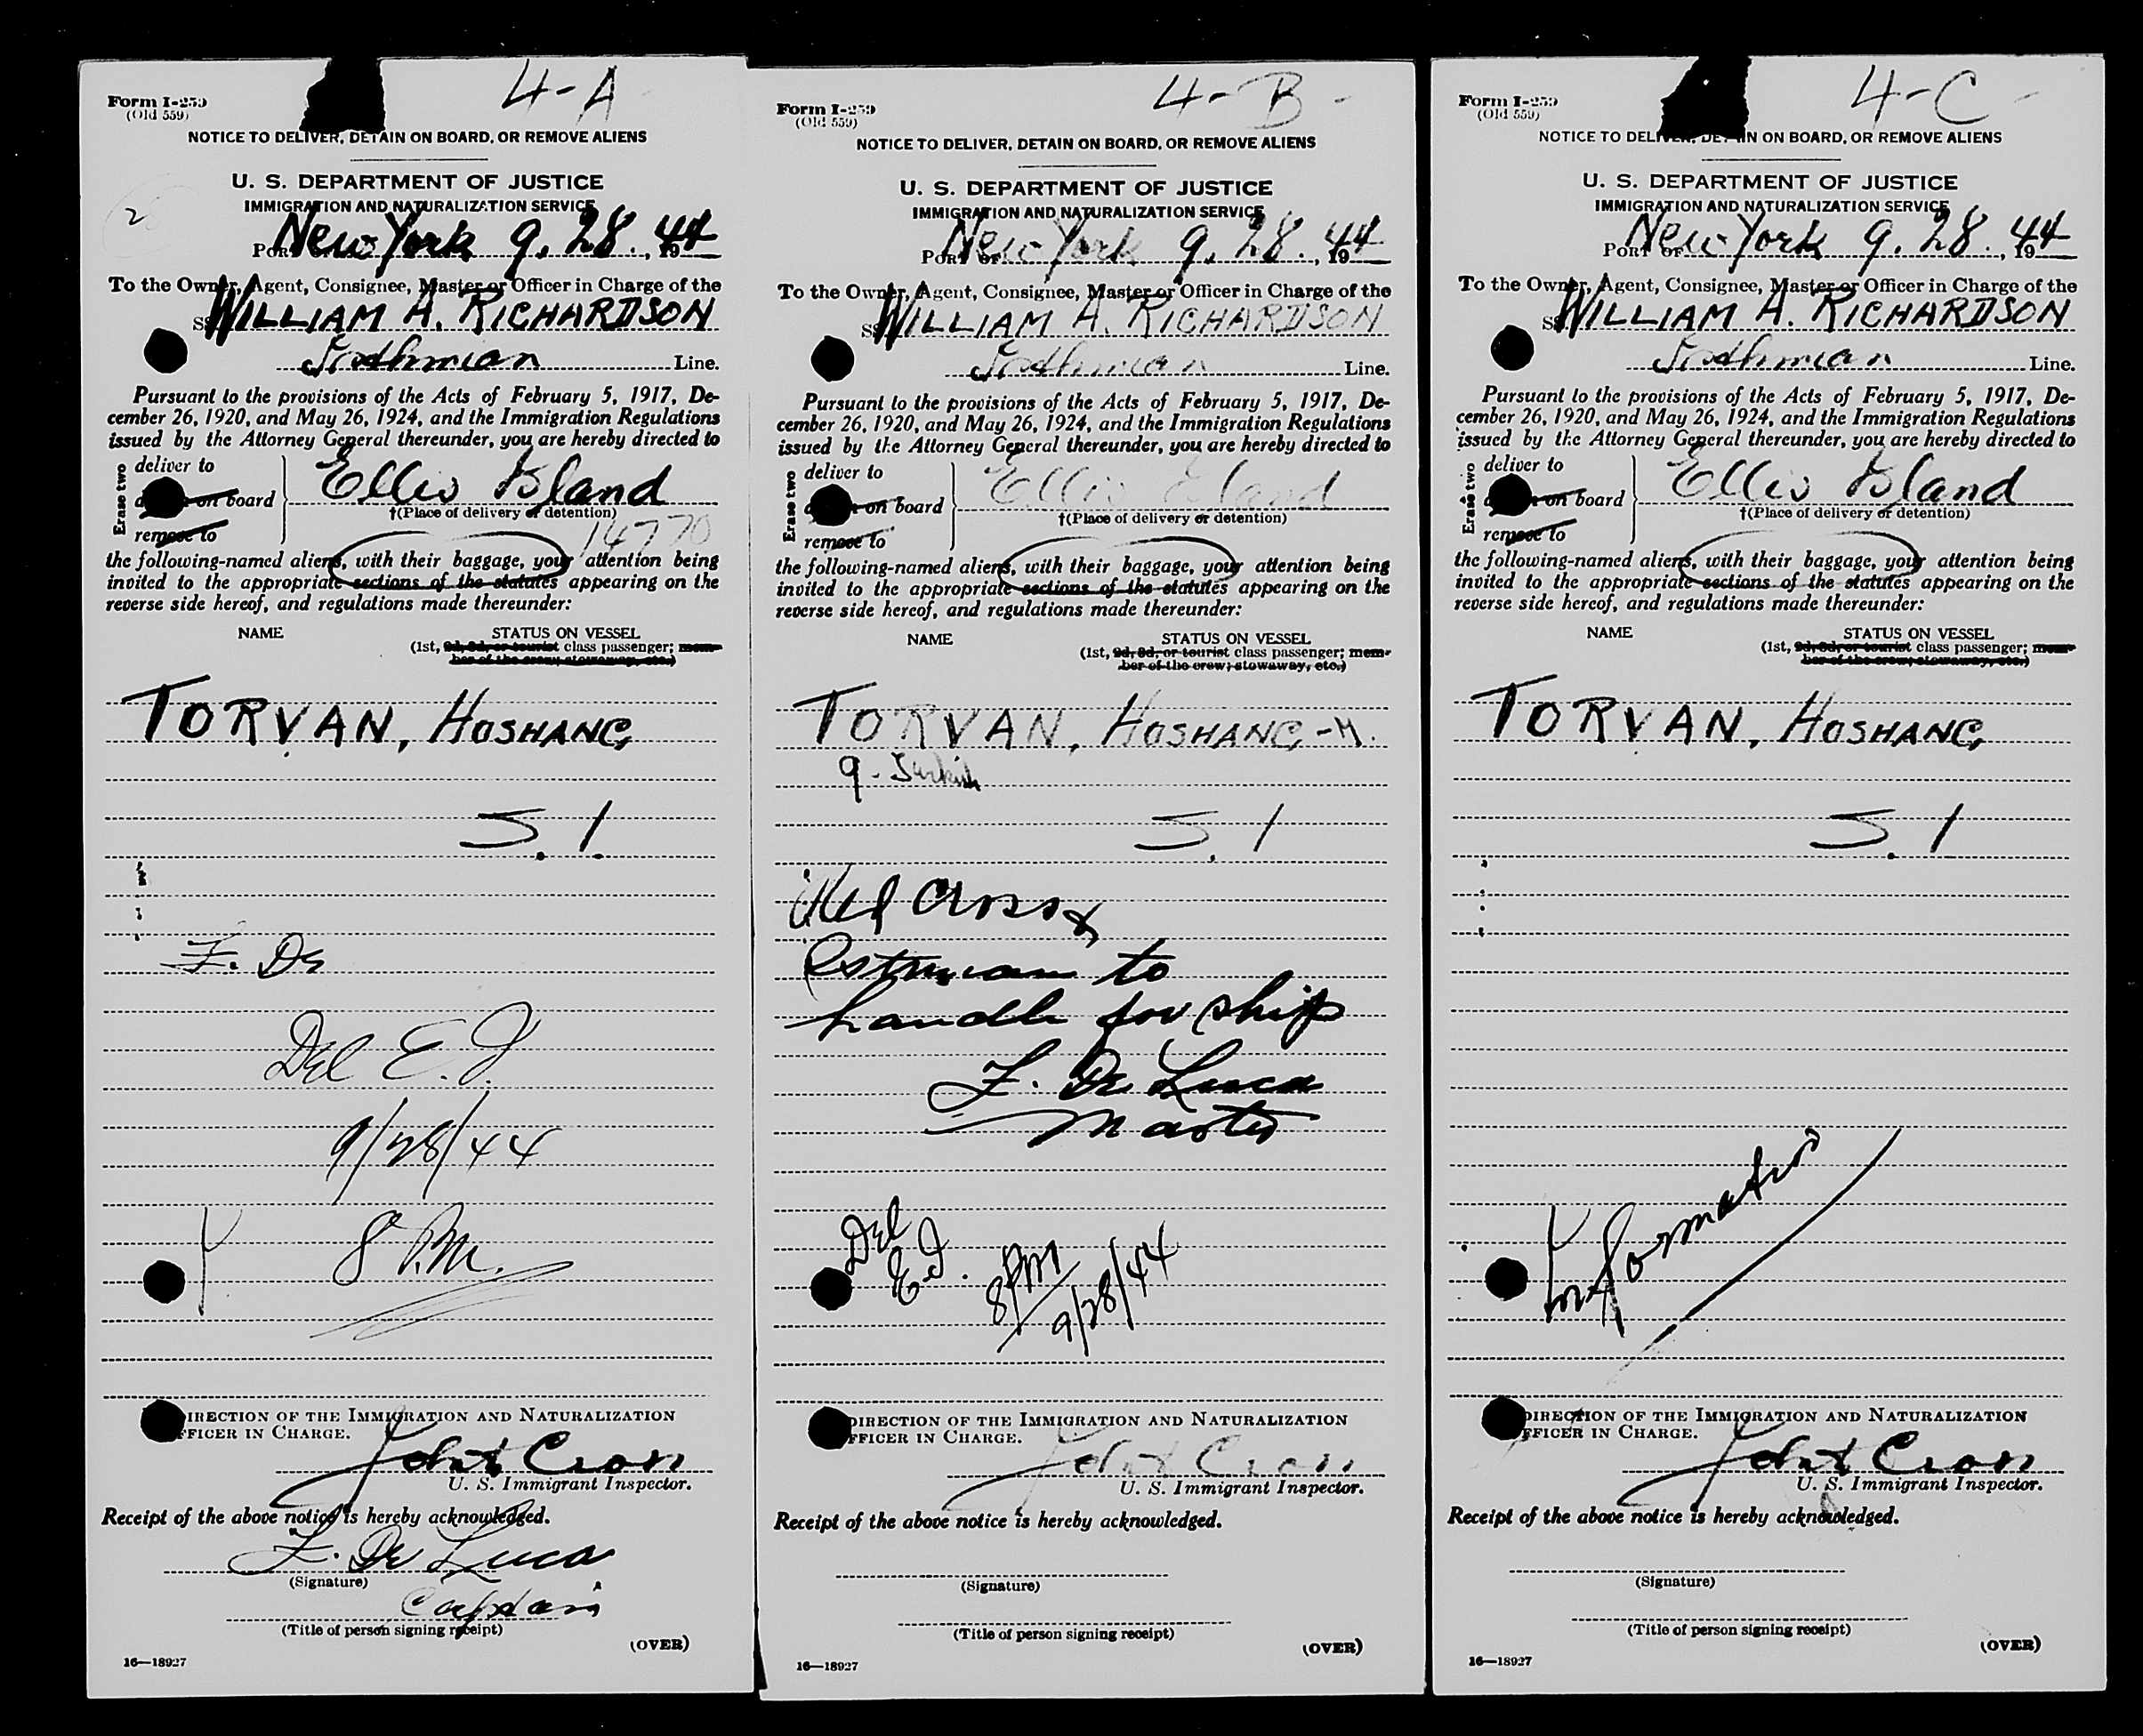 4-A
Form I-259
(Old 559)
NOTICE TO DELIVER, DETAIN ON BOARD, OR REMOVE ALIENS
U. S. DEPARTMENT OF JUSTICE
IMMIGRATION AND NATURALIZATION SERVICE
2
PORT New York 9. 28. , 1944
To the Owner, Agent, Consignee, Master or Officer in Charge of the
SS WILLIAM A. RICHARDSON
Isthmian Line.
Pursuant to the provisions of the Acts of February 5, 1917, De-
cember 26, 1920, and May 26, 1924, and the Immigration Regulations
issued by the Attorney General thereunder, you are hereby directed to
Erase two
deliver to
on board
remove to
Ellis Island
†(Place of delivery or detention)
14770
the following-named aliens, with their baggage, your attention being
invited to the appropriate sections of the statutes appearing on the
reverse side hereof, and regulations made thereunder:
NAME STATUS ON VESSEL
(1st, 2d, 3d, or tourist class passenger; mem-
ber of the crew; stowaway, etc.)
TORVAN, HOSHANG
S. I.
F. De
Del E. I.
9/28/44
8 P.M.
DIRECTION OF THE IMMIGRATION AND NATURALIZATION
OFFICER IN CHARGE.
John Cron
U. S. Immigrant Inspector.
Receipt of the above notice is hereby acknowledged.
F. De Luca
(Signature)
Captain
(Title of person signing receipt)
(OVER)
16—18927
4-B
Form I-259
(Old 559)
NOTICE TO DELIVER, DETAIN ON BOARD, OR REMOVE ALIENS
U. S. DEPARTMENT OF JUSTICE
IMMIGRATION AND NATURALIZATION SERVICE
PORT OF New York 9. 28. , 1944
To the Owner, Agent, Consignee, Master or Officer in Charge of the
SS WILLIAM A. RICHARDSON
Isthmian Line.
Pursuant to the provisions of the Acts of February 5, 1917, De-
cember 26, 1920, and May 26, 1924, and the Immigration Regulations
issued by the Attorney General thereunder, you are hereby directed to
Erase two
deliver to
on board
remove to
Ellis Island
†(Place of delivery or detention)
the following-named aliens, with their baggage, your attention being
invited to the appropriate sections of the statutes appearing on the
reverse side hereof, and regulations made thereunder:
NAME STATUS ON VESSEL
(1st, 2d, 3d, or tourist class passenger; mem-
ber of the crew; stowaway, etc.)
TORVAN, HOSHANG-M.
9 - Turkish
S. I
Red Cross &
to
handle for ship
F. De Luca
Master
Del
E.I. 8 PM
9/28/44
DIRECTION OF THE IMMIGRATION AND NATURALIZATION
OFFICER IN CHARGE.
John Cron
U. S. Immigrant Inspector.
Receipt of the above notice is hereby acknowledged.
(Signature)
(Title of person signing receipt)
(OVER)
16—18927
4-C
Form I-259
(Old 559)
NOTICE TO DELIVER, DETAIN ON BOARD, OR REMOVE ALIENS
U. S. DEPARTMENT OF JUSTICE
IMMIGRATION AND NATURALIZATION SERVICE
PORT OF New York 9. 28. , 1944
To the Owner, Agent, Consignee, Master or Officer in Charge of the
SS WILLIAM A. RICHARDSON
Isthmian Line.
Pursuant to the provisions of the Acts of February 5, 1917, De-
cember 26, 1920, and May 26, 1924, and the Immigration Regulations
issued by the Attorney General thereunder, you are hereby directed to
Erase two
deliver to
on board
remove to
Ellis Island
†(Place of delivery or detention)
the following-named aliens, with their baggage, your attention being
invited to the appropriate sections of the statutes appearing on the
reverse side hereof, and regulations made thereunder:
NAME STATUS ON VESSEL
(1st, 2d, 3d, or tourist class passenger; mem-
ber of the crew; stowaway, etc.)
TORVAN, HOSHANG
S. I
Information
DIRECTION OF THE IMMIGRATION AND NATURALIZATION
OFFICER IN CHARGE.
John Cron
U. S. Immigrant Inspector.
Receipt of the above notice is hereby acknowledged.
(Signature)
(Title of person signing receipt)
(OVER)
16—18927